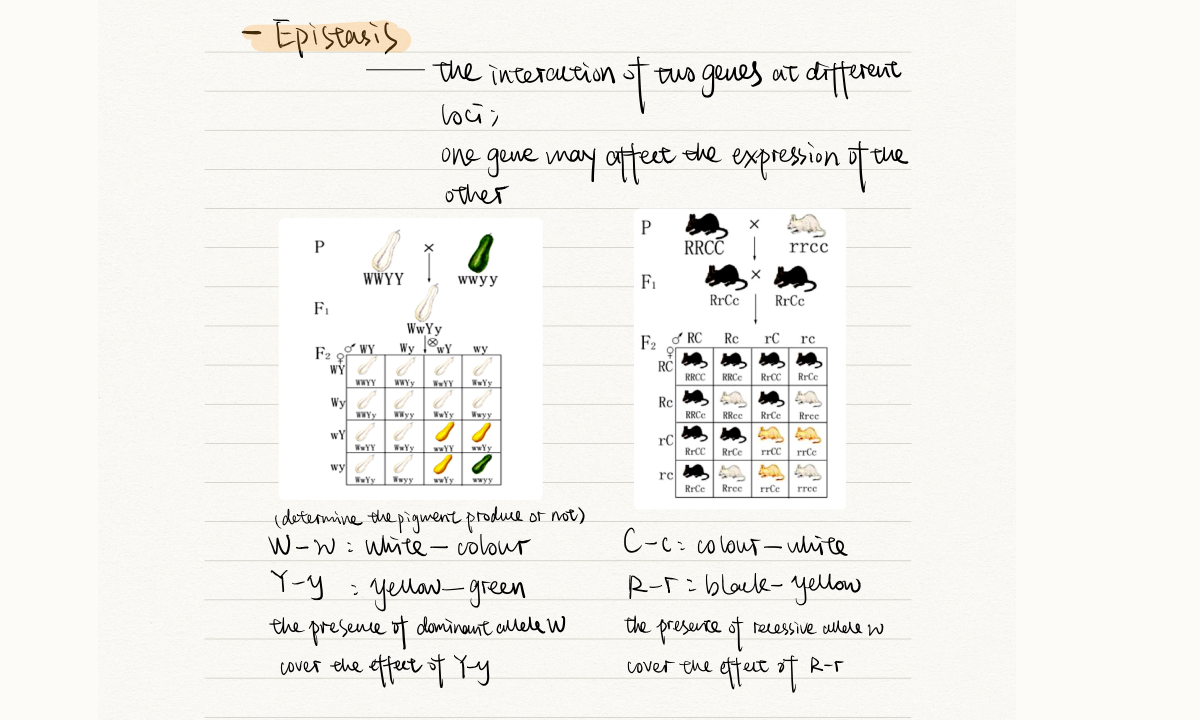 - Epistasis
— the interaction of two genes at different
loci;
one gene may affect the expression of the
other
P
×
WWYY wwyy
F₁
WwYy
⊗
F₂ ♀ ♂ WY Wy wY wy
WY WWYY WWYy WwYY WwYy
Wy WWYy WWyy WwYy Wwyy
wY WwYY WwYy wwYY wwYy
wy WwYy Wwyy wwYy wwyy
(determine the pigment produce or not)
W-w : white - colour
Y-y : yellow - green
the presence of dominant allele W
cover the effect of Y-y
P
×
RRCC rrcc
F₁ ×
RrCc RrCc
F₂ ♀ ♂ RC Rc rC rc
RC RRCC RRCc RrCC RrCc
Rc RRCc RRcc RrCc Rrcc
rC RrCC RrCc rrCC rrCc
rc RrCc Rrcc rrCc rrcc
C-c : colour - white
R-r : black - yellow
the presence of recessive allele w
cover the effect of R-r